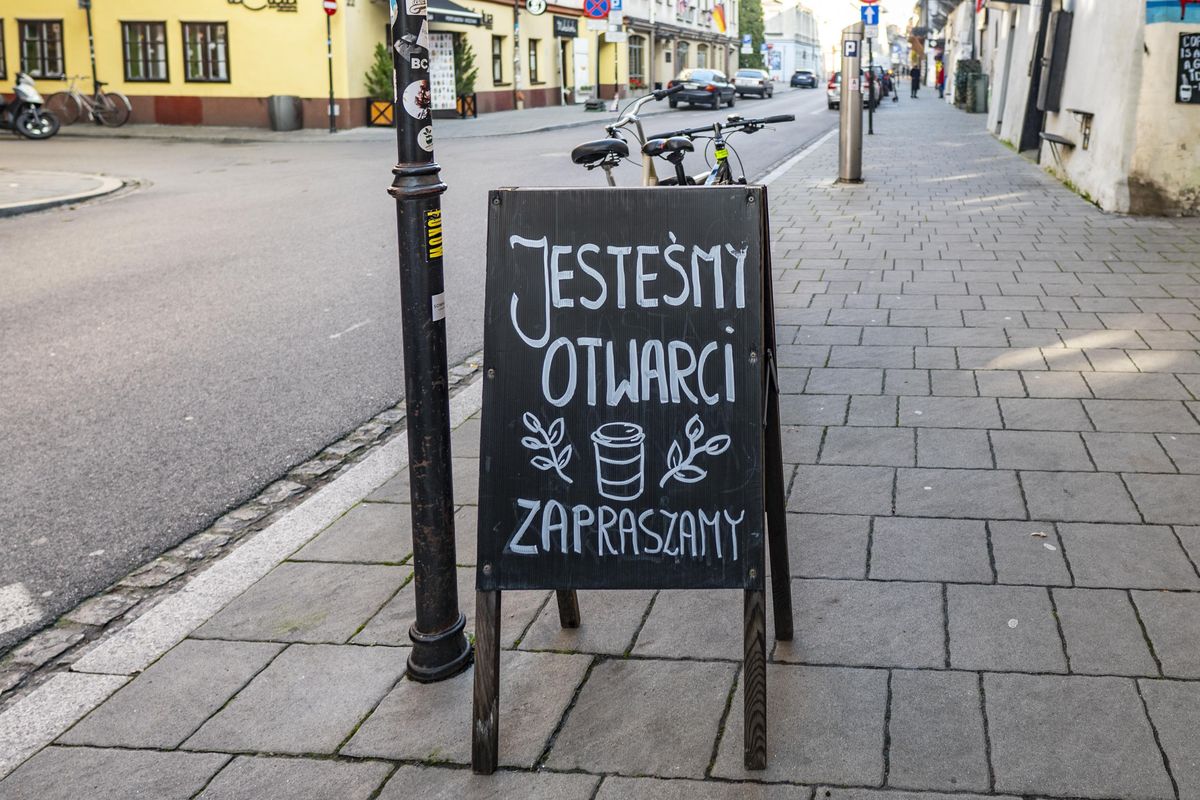 JESTEŚMY
OTWARCI
ZAPRASZAMY